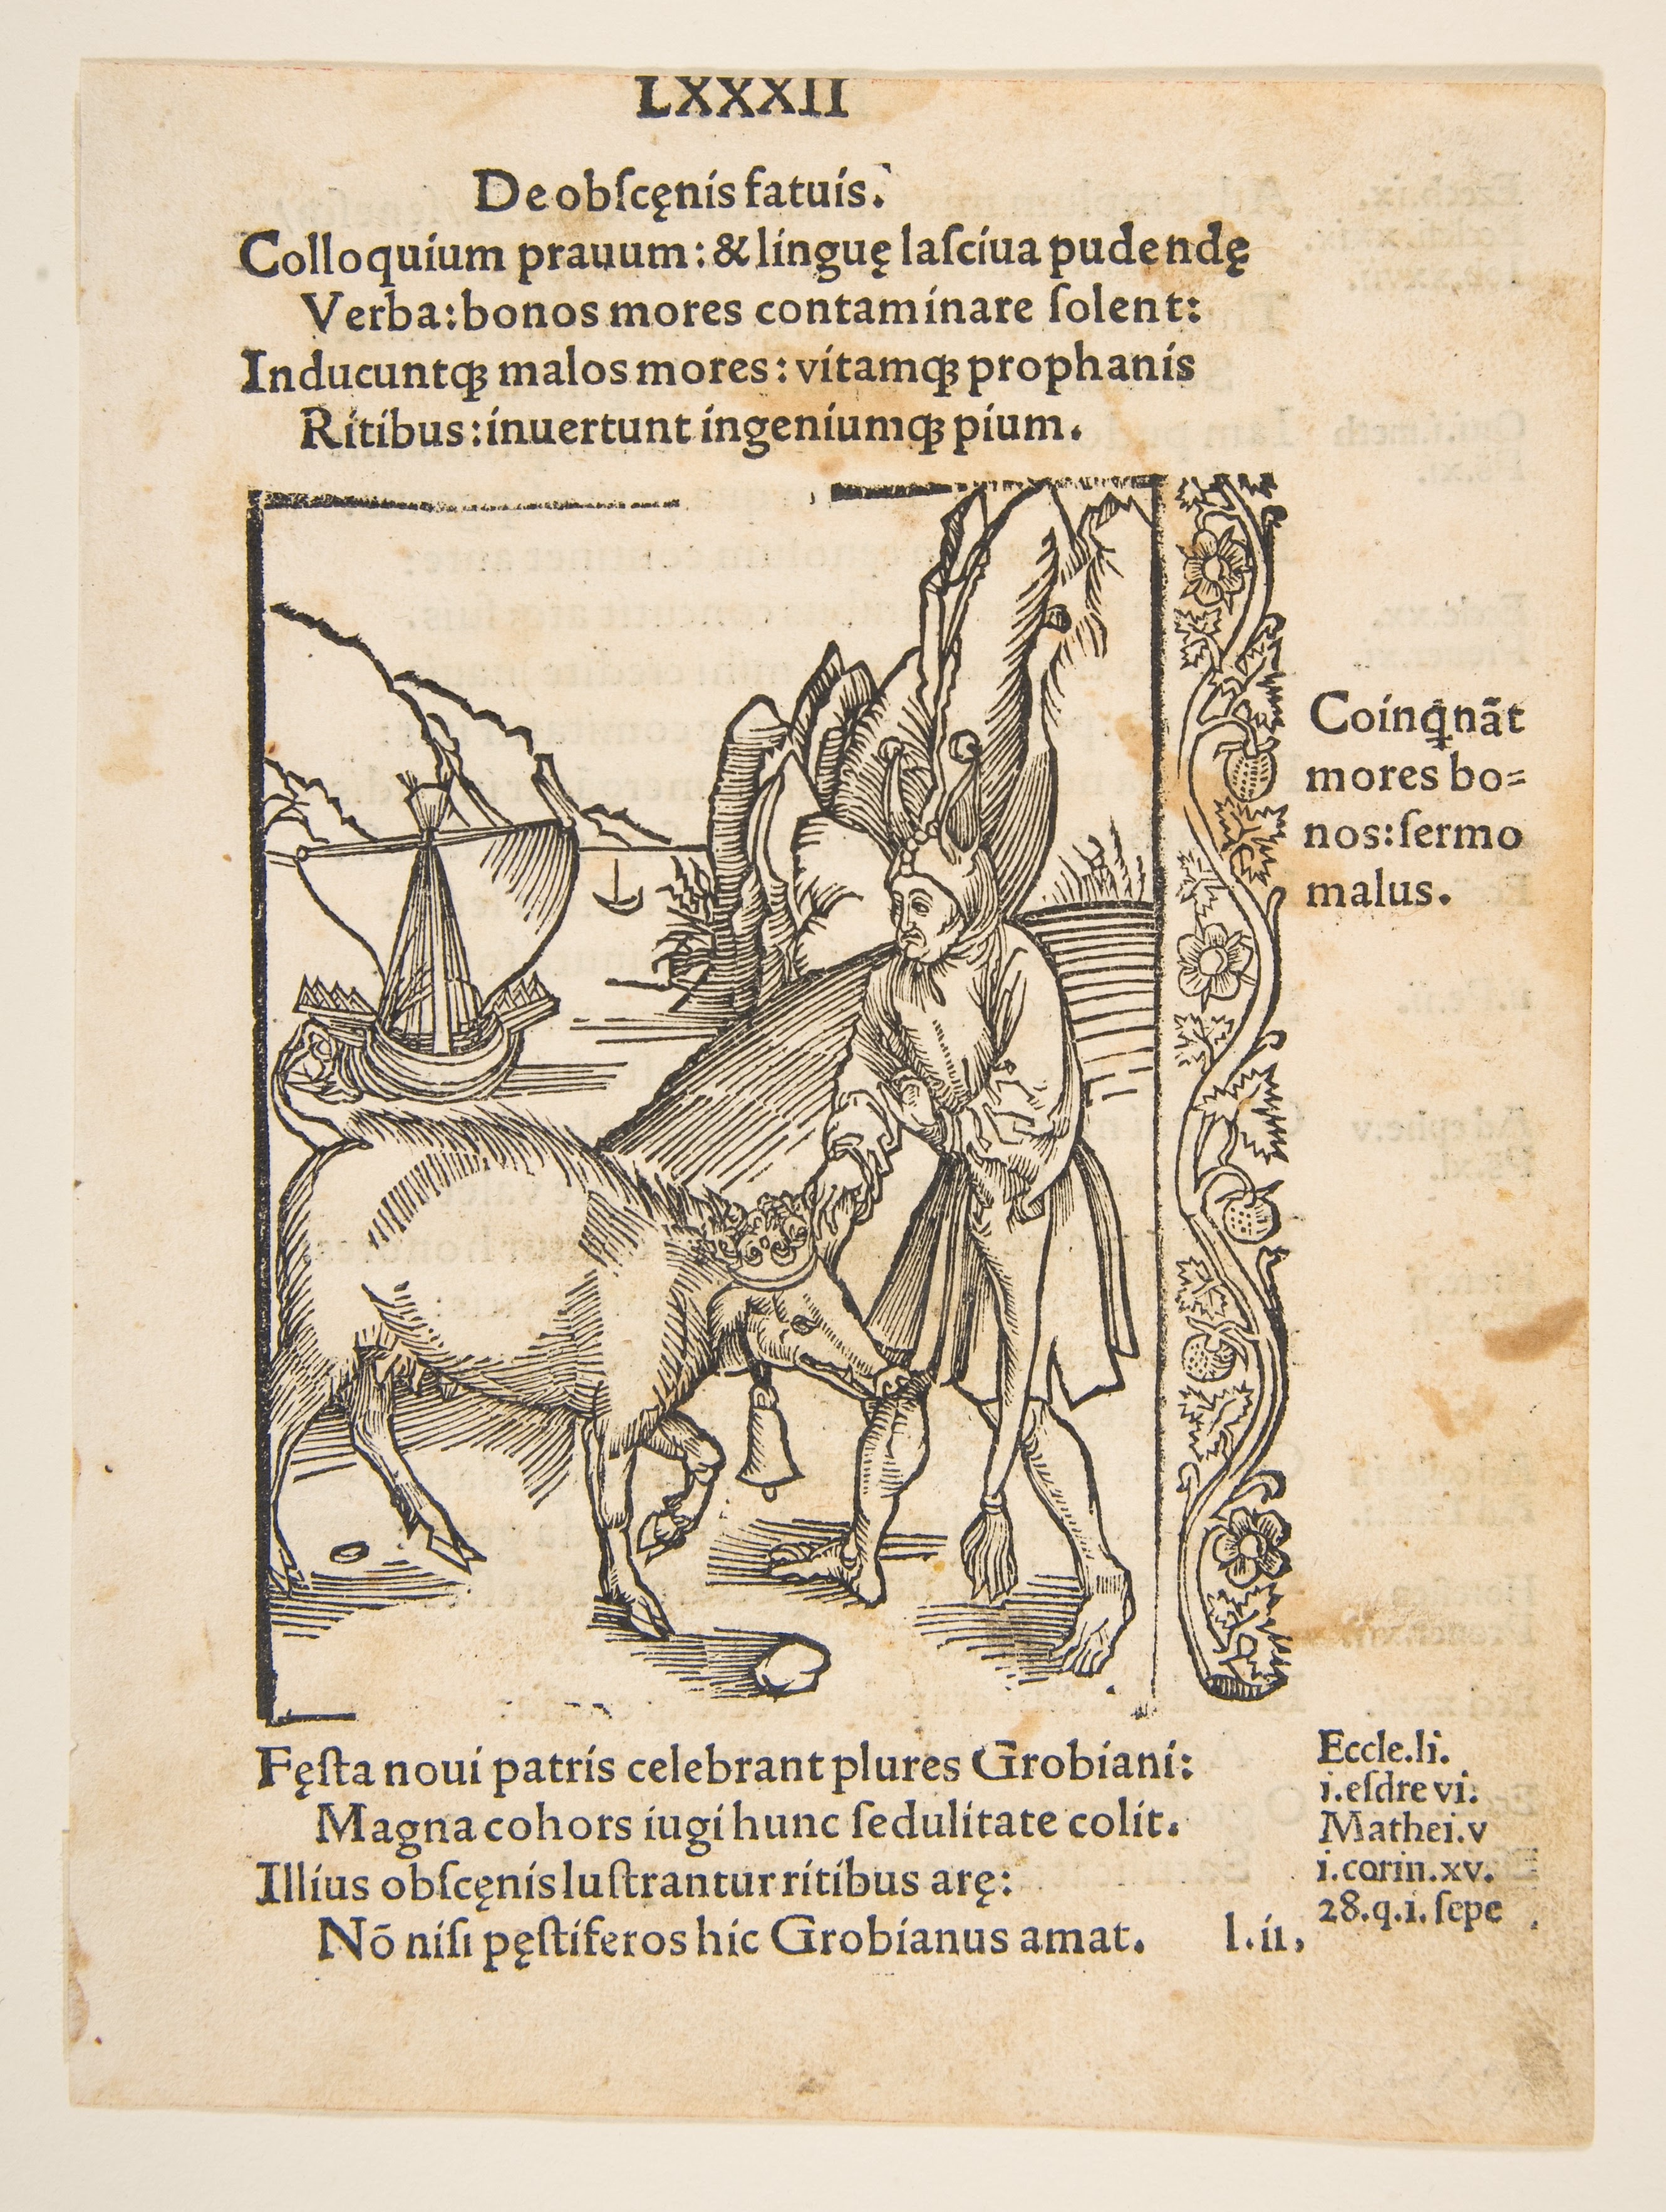 LXXXII
De obſcęnis fatuis.
Colloquium prauum: & linguę laſciua pudendę
Verba: bonos mores contaminare ſolent:
Inducuntqꝫ malos mores: vitamqꝫ prophanis
Ritibus: inuertunt ingeniumqꝫ pium.
Coinq̄nāt
mores bo=
nos: ſermo
malus.
Fęſta noui patris celebrant plures Grobiani:
Magna cohors iugi hunc ſedulitate colit.
Illius obſcęnis luſtrantur ritibus arę:
Nō niſi pęſtiferos hic Grobianus amat.
l.ii,
Eccle.li.
i.eſdre vi.
Mathei.v
i.corin.xv.
28.q.1. ſepe